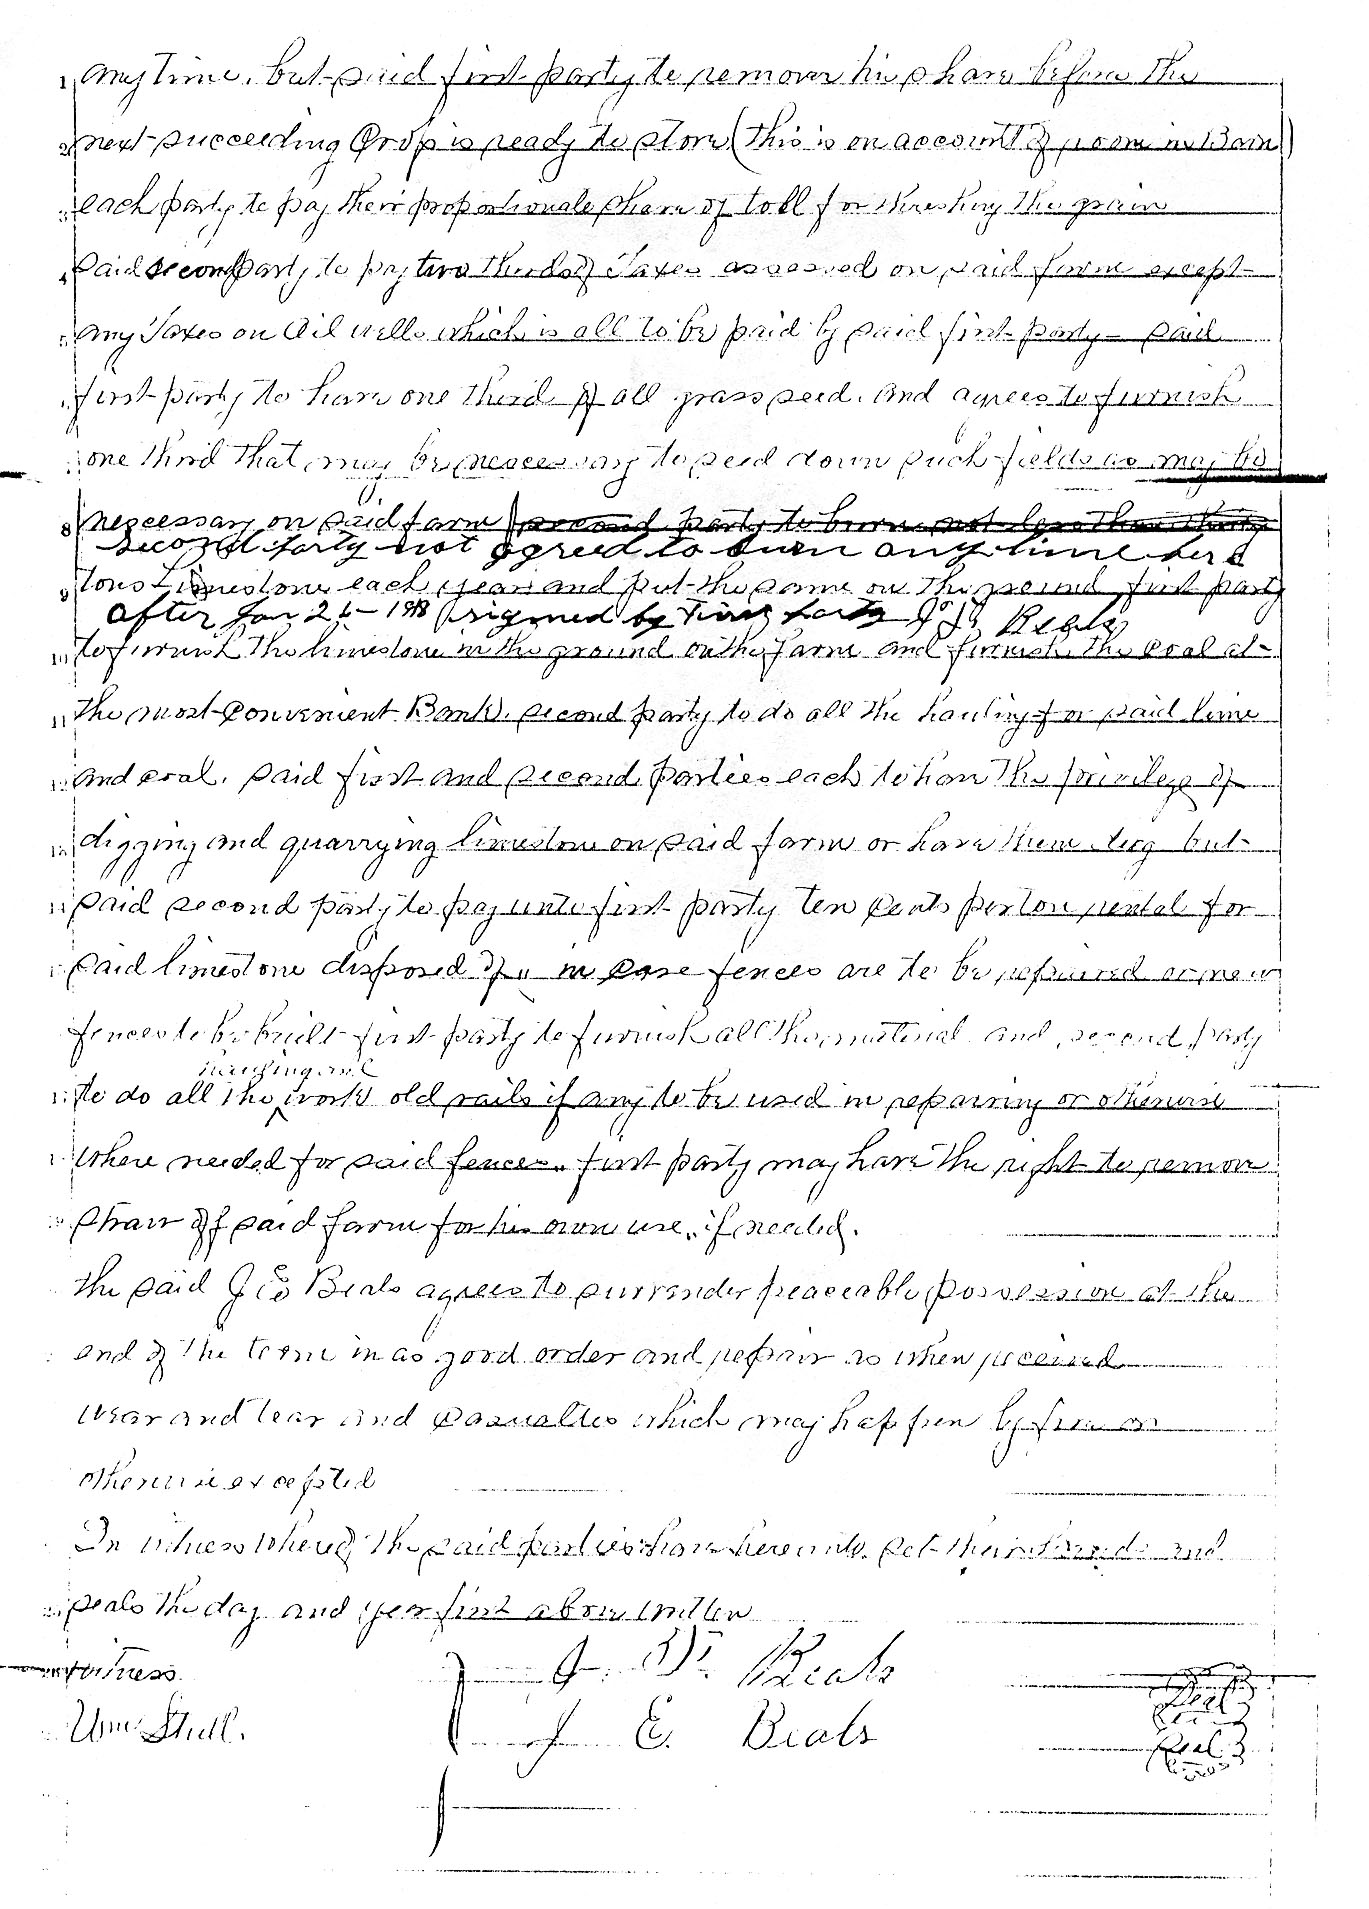 1 any time. but said first party to remove his share before the
2 next succeeding Crop is ready to store (this is on account of room in Barn)
3 each party to pay their proportionate share of toll for threshing the grain
4 said second party to pay two thirds of Taxes assessed on said farm except
5 any Taxes on Oil wells which is all to be paid by said first party - said
first party to have one third of all grass seed. and agrees to furnish
one third that may be nescessary to seed down such fields as may be
8 nescessary on said farm second party to burn not less than thirty
second party not agreed to burn any time here
9 tons Limestone each year and put the same on the ground first party
after Jan 26 - 1918 signed by First party J. W. Beals
10 to furnish the limestone in the ground on the farm and furnish the coal at
11 the most convenient Bank. second party to do all the hauling for said lime
12 and coal. said first and second parties each to have the privilege of
13 digging and quarrying limestone on said farm or have them dug but
14 said second party to pay unto first party ten cents per ton rental for
said limestone disposed of. in case fences are to be repaired or new
fences to be built first party to furnish all the material and second party
hauling and
to do all the ^ work old rails if any to be used in repairing or otherwise
where needed for said fences. first party may have the right to remove
straw off said farm for his own use. if needed.
the said J E Beals agrees to surrender peaceable possession at the
end of the term in as good order and repair as when received
wear and tear and casualties which may happen by fire or
otherwise excepted
In witness whereof the said parties have hereunto set their hands and
seals the day and year first above written
witness J. W. Beals Seal
Wm Stull. J E. Beals Seal